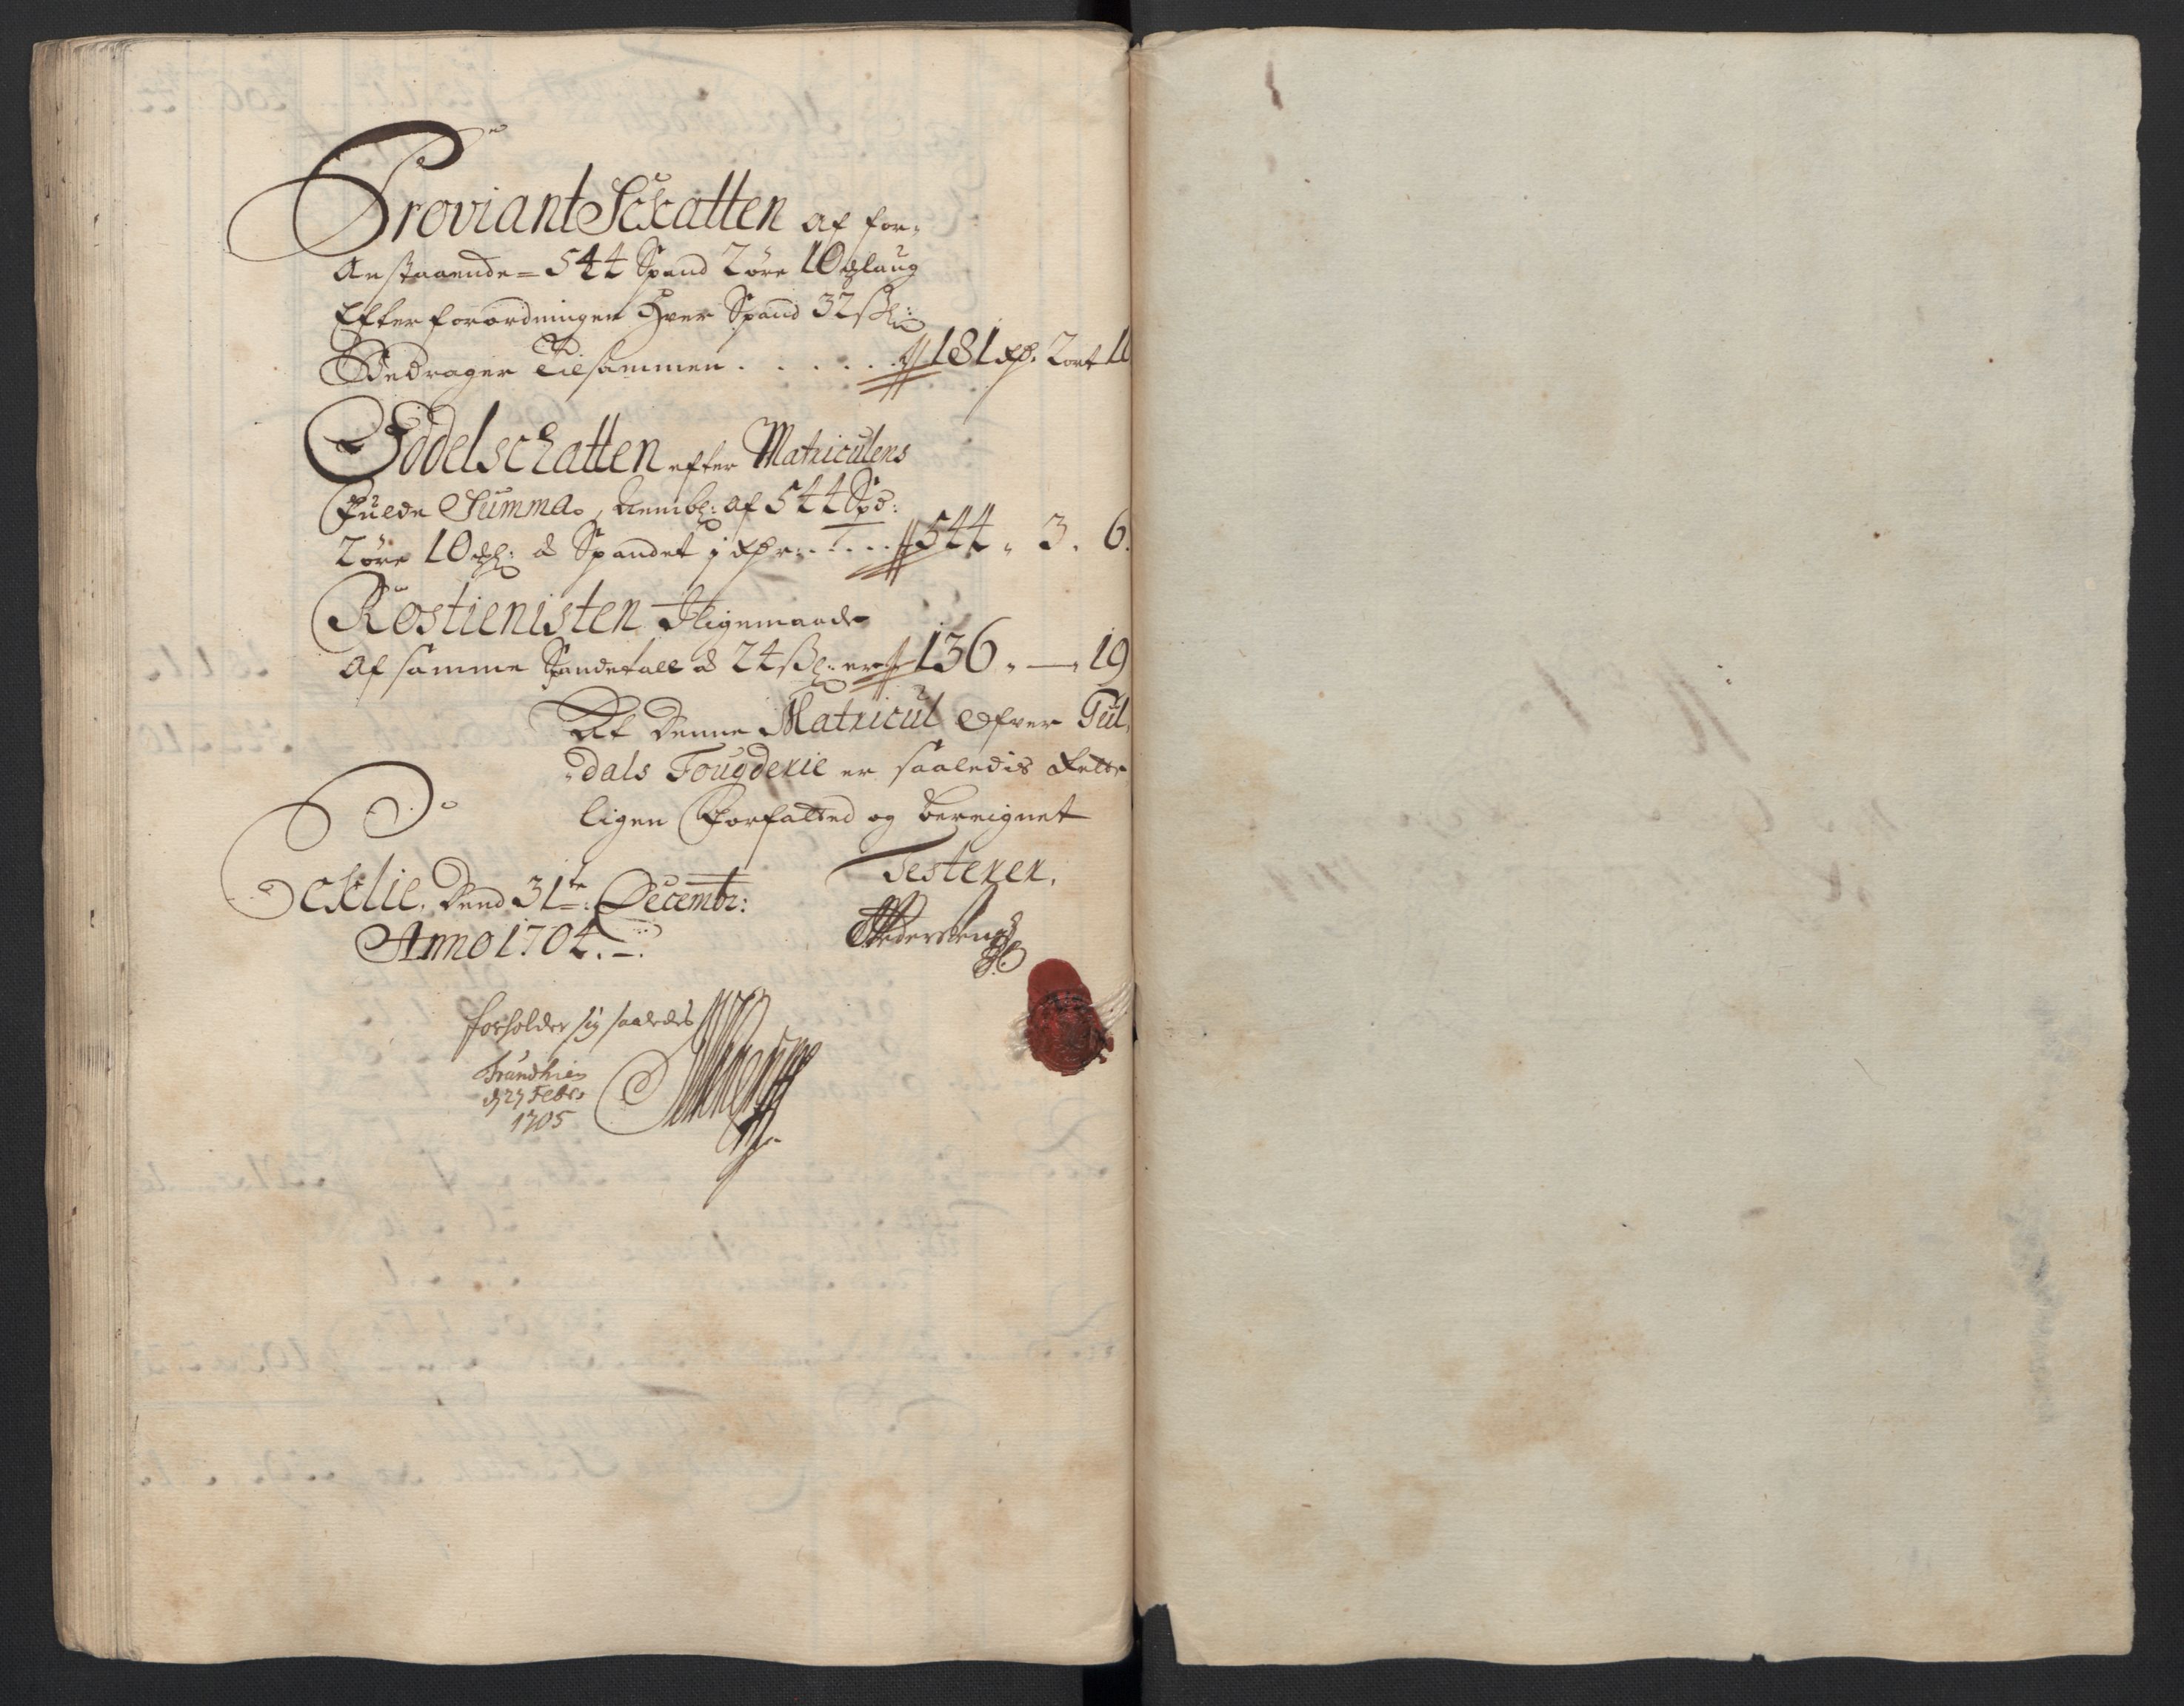 Proviant Schatten af for¬
Anstaaende = 544 Spand 2 øre 10 ꝑlaug
Efter forordningen Hver Spand 32 ßl:
Bedrager Tilsammen . . . . . . 181 Rdr. 2 ort 1
Oddelschatten efter Matriculens
Fulde Summa, Nembl: af 544 Spd:
2 øre 10 ꝑl: â Spandet j Rdr . . . . . 544 „ 3 . 6.
Rostienisten I Ligemaade
Af samme Spandetall â 24 ßl: er 136 „ — „ 19
At denne Matricul Ofver Gul¬
dals Fougderie er saaledis Rette
ligen Forfatted og bereignet
Testerer.
Dend 31te: Decembr:
Anno 1704. –.
Pedersen
forholder sig saaledes
Trundhiem
d 27 Febr:
1705